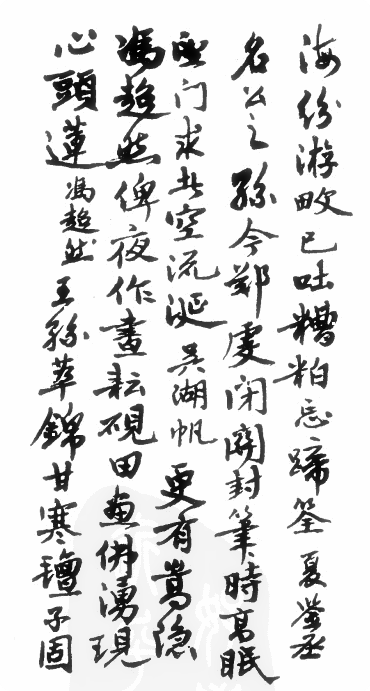 海粉游畋已吐糟粕忘蹄筌 夏丞
名公之孫今鄭虔閉關封筆時高眠
门求空流涎 吳湖帆 更有嵩隐
馮超然俾夜作畫耘硯田畫佛湧現
心頭蓮 馮超然 王孫萃錦甘寒 子固